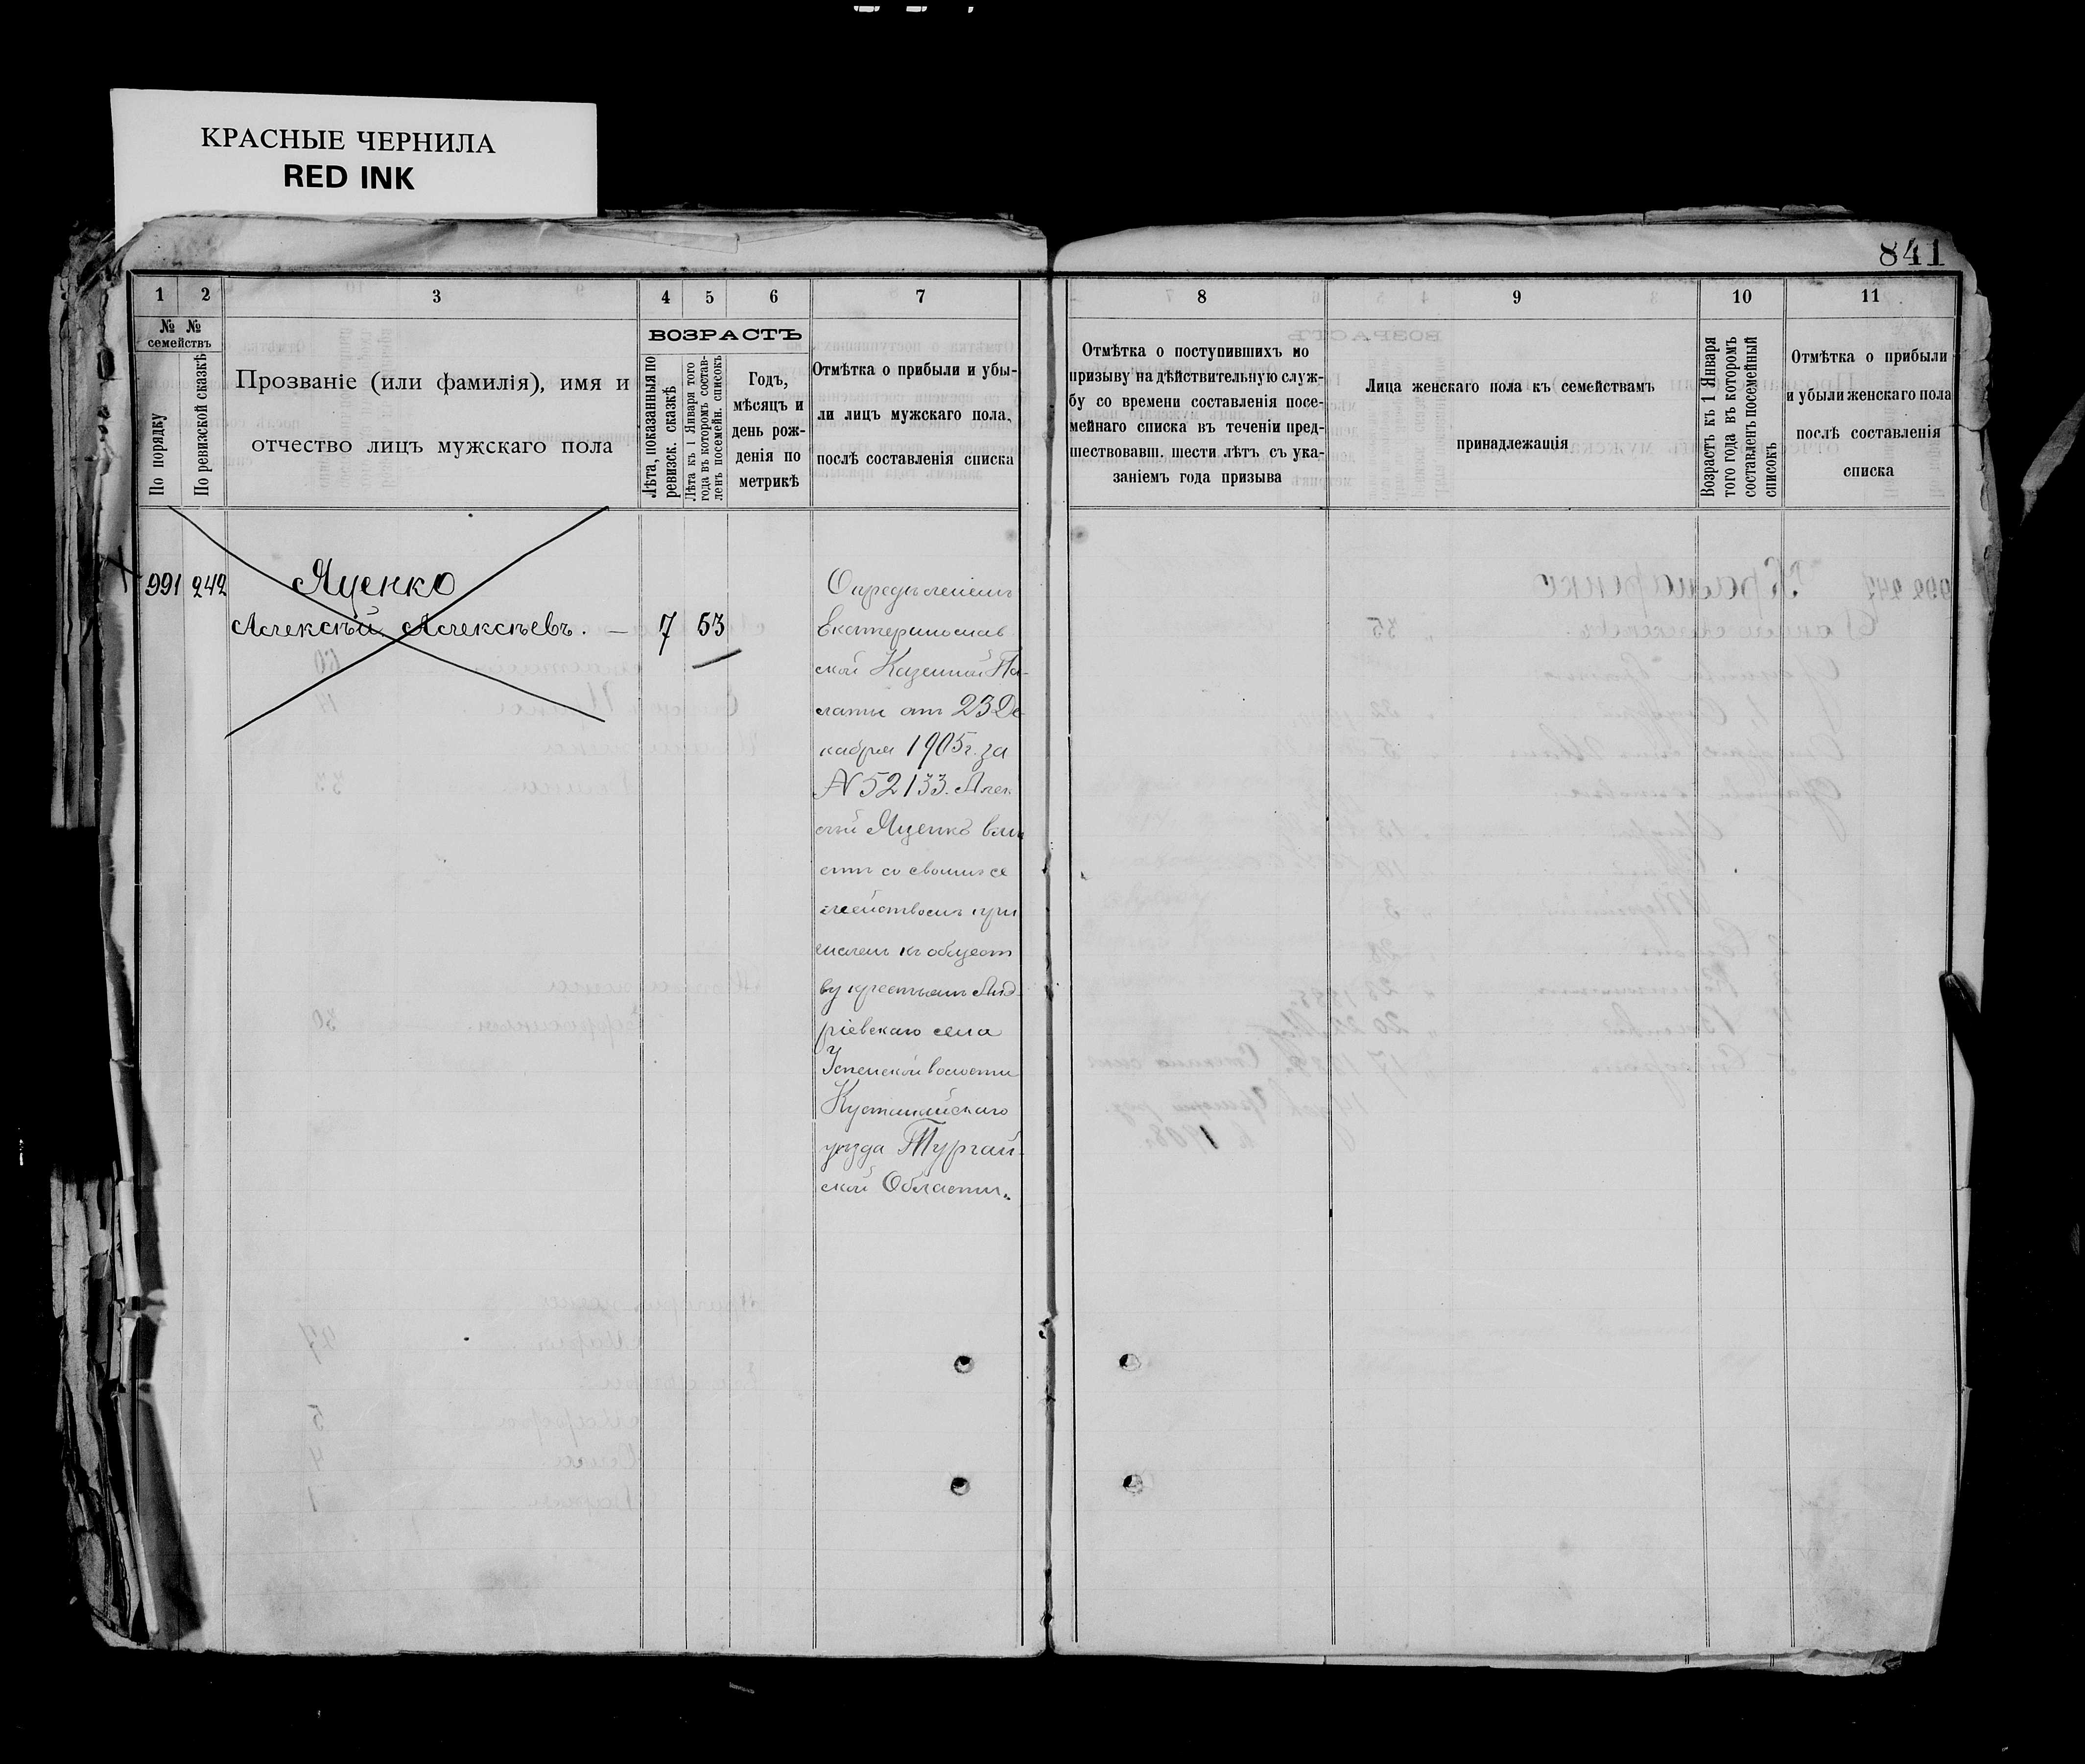 КРАСНЫЕ ЧЕРНИЛА
RED INK
841
1
2
3
4
5
6
7
8
9
10
11
№ №
семействъ
По порядку
По ревизской сказкѣ
Прозваніе (или фамилія), имя и
отчество лицъ мужскаго пола
ВОЗРАСТЪ
Лѣта, показанныя по
ревизск. сказкѣ
Лѣта къ 1 Января того
года въ которомъ состав-
ленъ посемейн. списокъ
Годъ,
мѣсяцъ и
день рож-
денія по
метрикѣ
Отмѣтка о прибыли и убы-
ли лицъ мужскаго пола,
послѣ составленія списка
Отмѣтка о поступившихъ по
призыву на дѣйствительную служ-
бу со времени составленія посе-
мейнаго списка въ теченіи пред-
шествовавш. шести лѣтъ съ ука-
заніемъ года призыва
Лица женскаго пола къ семействамъ
принадлежащія
Возрастъ къ 1 Января
того года въ которомъ
составленъ посемейный
списокъ
Отмѣтка о прибыли
и убыли женскаго пола
послѣ составленія
списка
991 242 Яценко
Алексѣй Алексѣевъ. — 7 53
Опредѣленіемъ
Екатеринослав
ской Казенной Па-
латы отъ 23 Де
кабря 1905 г. за
№ 52133. Алек
сѣй Яценко вмѣ
стѣ со своимъ се
мействомъ при
численъ къ общест
ву крестьянъ Анд
ріевскаго села
Успенской волости
Кустанайскаго
уѣзда Тургай-
ской Области.